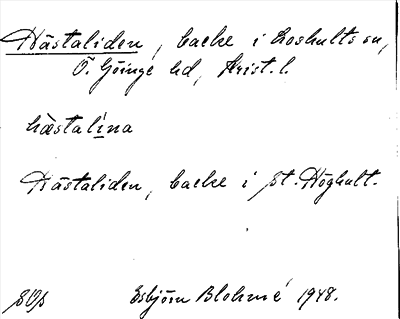 Hästaliden, backe i Loshults sn,
Ö. Göinge hd, Krist. l.
hæ̀stalína
Hästaliden, backe i St. Höghult.
Esbjörn Blohmé 1948.